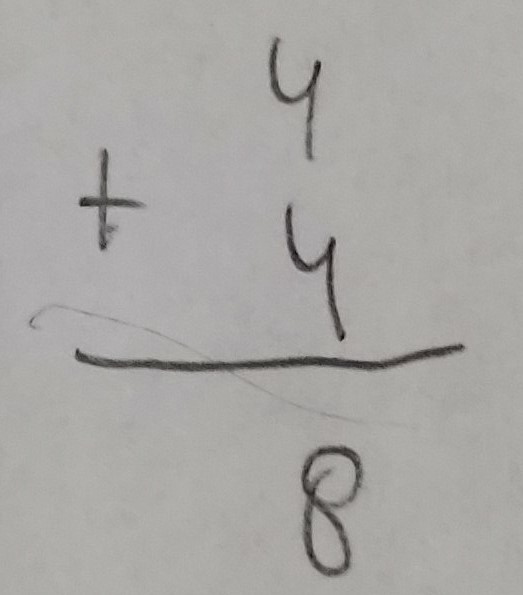 4
+ 4
8